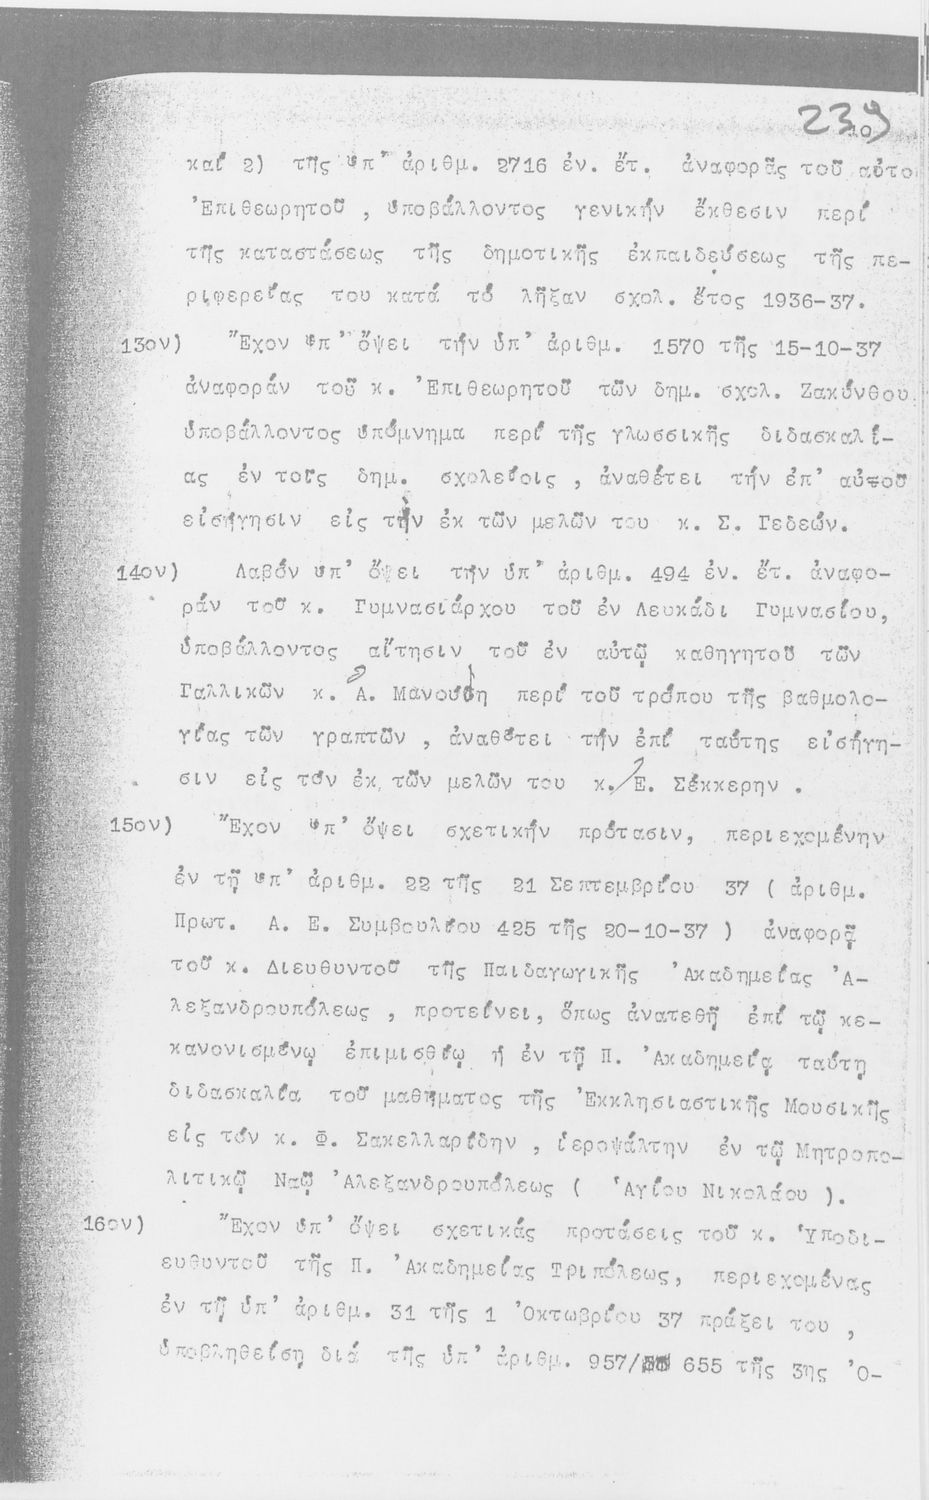 239
10
καί 2) τῆς ὑπ' ἀριθμ. 2716 ἐν. ἔτ. ἀναφορᾶς τοῦ αὐτο
'Επιθεωρητοῦ , ὑποβάλλοντος γενικήν ἔκθεσιν περί
τῆς καταστάσεως τῆς δημοτικῆς ἐκπαιδεύσεως τῆς πε-
ριφερείας του κατά τό λῆξαν σχολ. ἔτος 1936-37.
13ον) Ἔχον ὑπ' ὄψει τήν ὑπ' ἀριθμ. 1570 τῆς 15-10-37
ἀναφοράν τοῦ κ. 'Επιθεωρητοῦ τῶν δημ. σχολ. Ζακύνθου
ὑποβάλλοντος ὑπόμνημα περί τῆς γλωσσικῆς διδασκαλί-
ας ἐν τοῖς δημ. σχολείοις , ἀναθέτει τήν ἐπ' αὐτοῦ
εἰσήγησιν εἰς τήν ἐκ τῶν μελῶν του κ. Σ. Γεδεών.
14ον) Λαβόν ὑπ' ὄψει τήν ὑπ' ἀριθμ. 494 ἐν. ἔτ. ἀναφο-
ράν τοῦ κ. Γυμνασιάρχου τοῦ ἐν Λευκάδι Γυμνασίου,
ὑποβάλλοντος αἴτησιν τοῦ ἐν αὐτῷ καθηγητοῦ τῶν
Γαλλικῶν κ. Α. Μανούση περί τοῦ τρόπου τῆς βαθμολο-
γίας τῶν γραπτῶν , ἀναθέτει τήν ἐπί ταύτης εἰσήγη-
σιν εἰς τόν ἐκ τῶν μελῶν του κ. Ε. Σέκκερην .
15ον) Ἔχον ὑπ' ὄψει σχετικήν πρότασιν, περιεχομένην
ἐν τῇ ὑπ' ἀριθμ. 22 τῆς 21 Σεπτεμβρίου 37 ( ἀριθμ.
Πρωτ. Α. Ε. Συμβουλίου 425 τῆς 20-10-37 ) ἀναφορᾷ
τοῦ κ. Διευθυντοῦ τῆς Παιδαγωγικῆς 'Ακαδημείας 'Α-
λεξανδρουπόλεως , προτείνει, ὅπως ἀνατεθῇ ἐπί τῷ κε-
κανονισμένῳ ἐπιμισθίῳ ἡ ἐν τῇ Π. 'Ακαδημείᾳ ταύτῃ
διδασκαλία τοῦ μαθήματος τῆς 'Εκκλησιαστικῆς Μουσικῆς
εἰς τόν κ. Φ. Σακελλαρίδην , ἱεροψάλτην ἐν τῷ Μητροπο-
λιτικῷ Ναῷ 'Αλεξανδρουπόλεως ( 'Αγίου Νικολάου ).
16ον) Ἔχον ὑπ' ὄψει σχετικάς προτάσεις τοῦ κ. Ὑποδι-
ευθυντοῦ τῆς Π. 'Ακαδημείας Τριπόλεως, περιεχομένας
ἐν τῇ ὑπ' ἀριθμ. 31 τῆς 1 'Οκτωβρίου 37 πράξει του ,
ὑποβληθείσῃ διά τῆς ὑπ' ἀριθμ. 957/ 655 τῆς 3ης 'Ο-